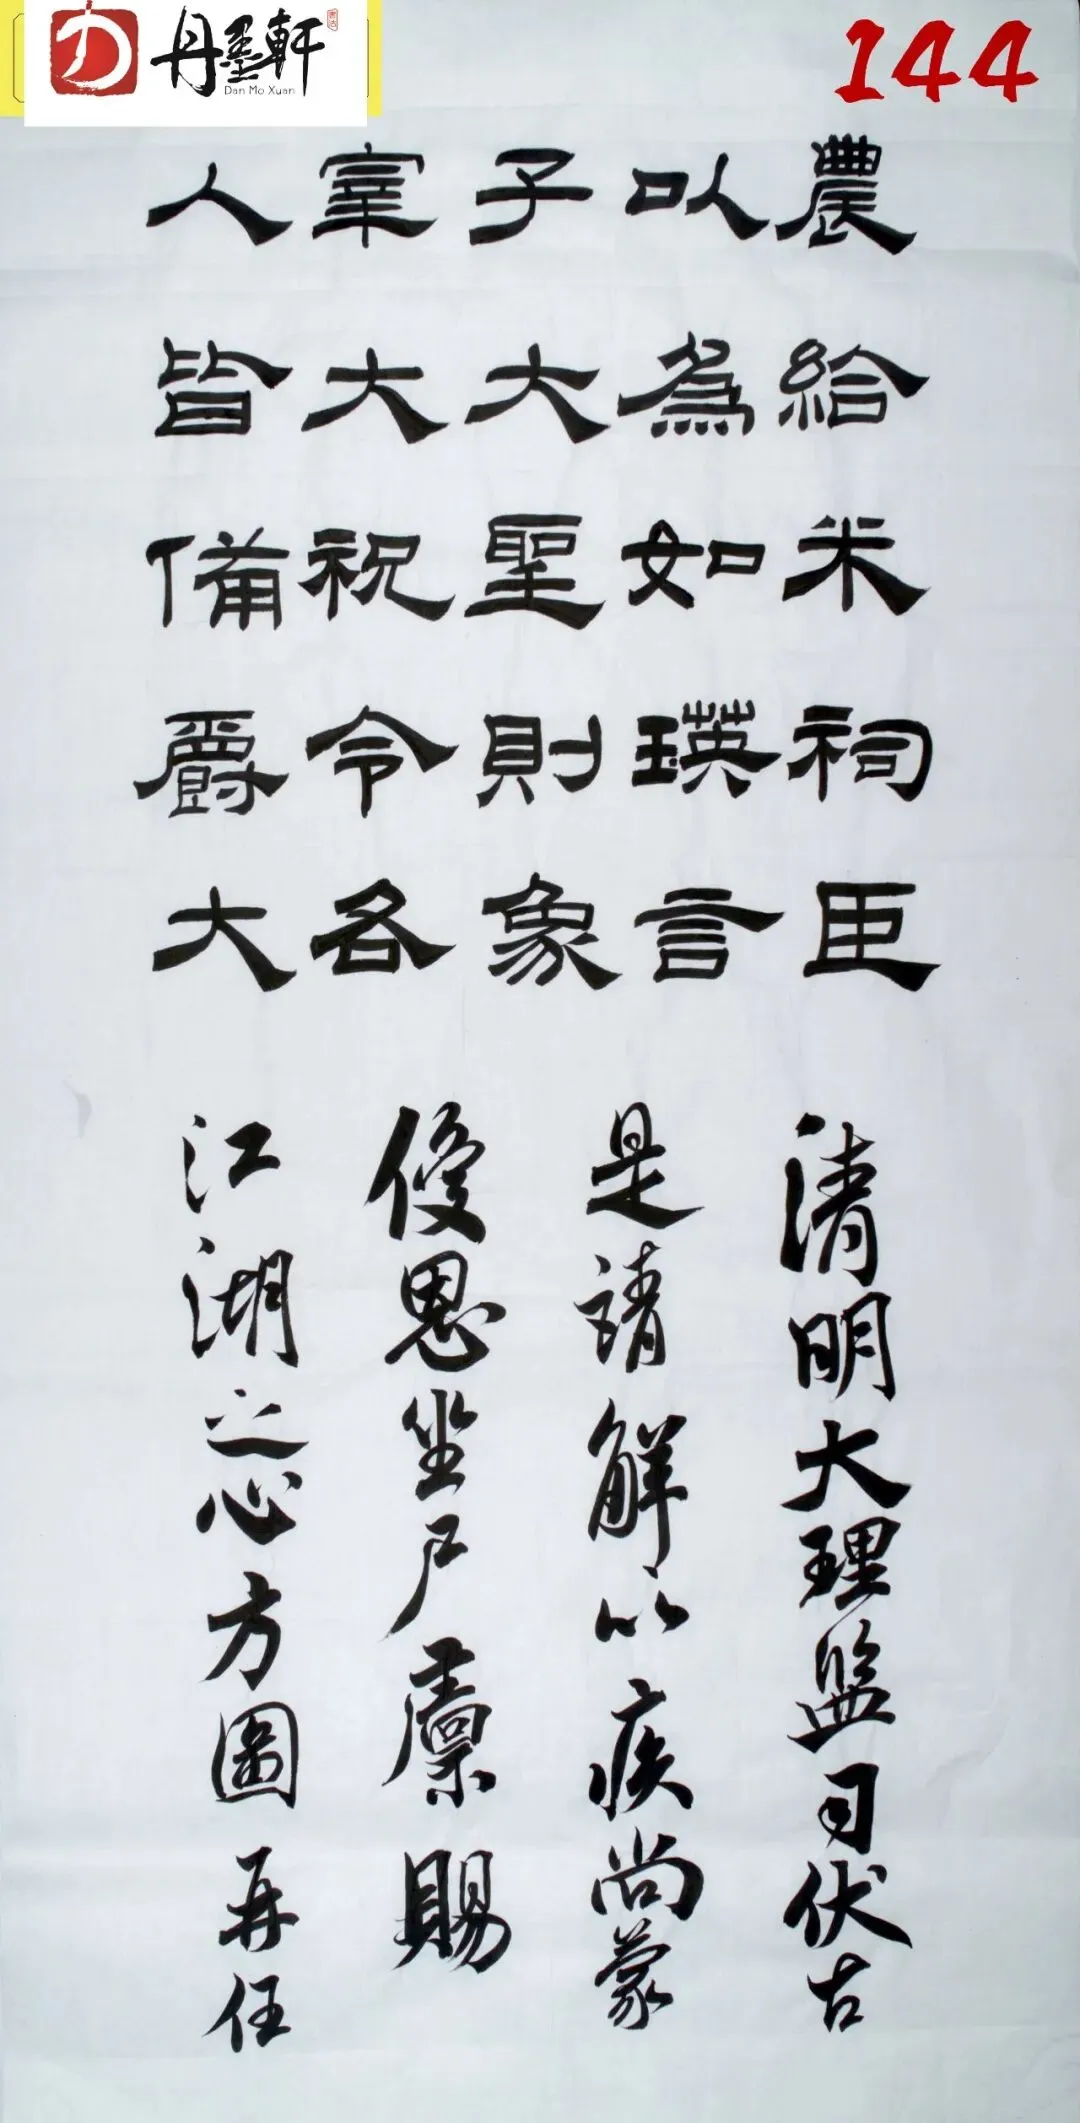 丹墨軒
Dan Mo Xuan
144
農給米祠臣
以為如瑛言
子大聖則象
宰大祝令各
人皆備爵大
清明大理監司伏古
是請解以疾尚蒙
優恩坐尸廩賜
江湖之心方圖再任